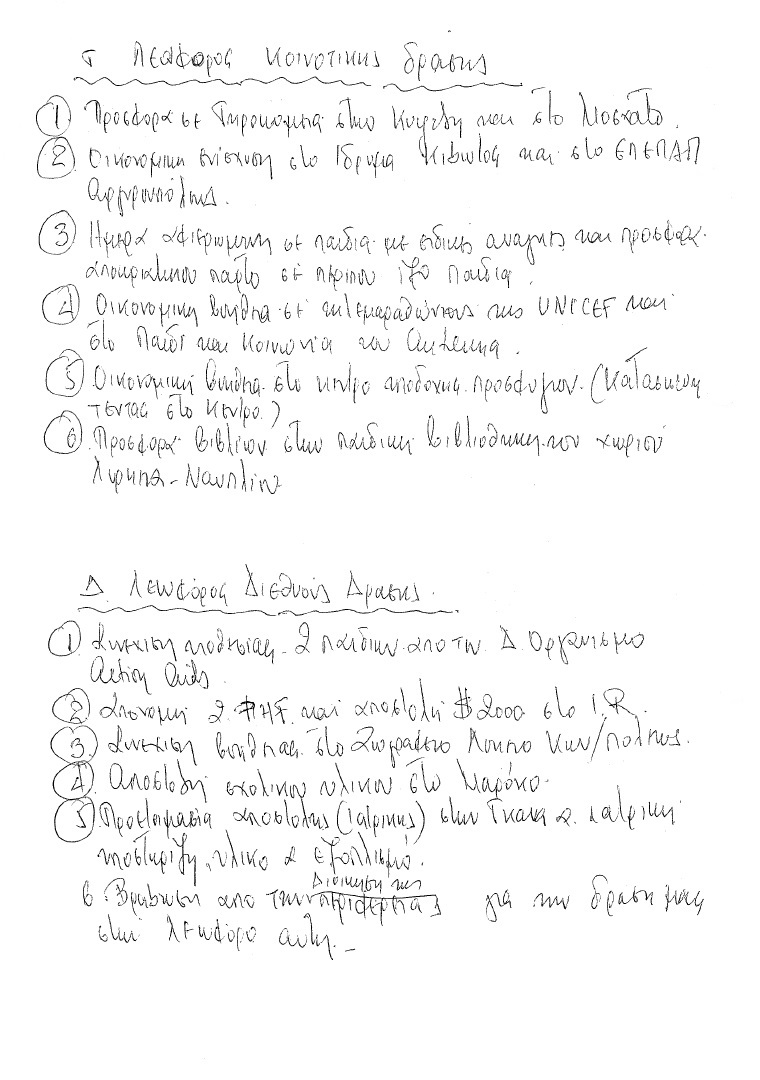 Γ Λεωφορος Κοινοτικης δρασης
① Προσφορα σε Γηροκομεια στην Κυψελη και στο Μοσχατο.
② Οικονομικη ενισχυση στο Ιδρυμα Κιβωτος και στο ΕΠΕΠΑΠ
Αργυρουπολεως.
③ Ημερα αφιερωμενη σε παιδια με ειδικες αναγκες και προσφορα
αποκριατικου παρτυ σε περιπου 120 παιδια.
④ Οικονομικη βοηθεια σε τηλεμαραθωνιους της UNICEF και
στο Παιδι και Κοινωνια του Αντεννα.
⑤ Οικονομικη βοηθεια στο κεντρο αποδοχης προσφυγων. (Κατασκευη
τεντας στο Κεντρο.)
⑥ Προσφορα βιβλιων στην παιδικη βιβλιοθηκη του χωριου
Λυρκεια - Ναυπλιου
Δ. Λεωφόρος Διεθνούς Δρασης.
① Συνεχιση υιοθεσιας 2 παιδιων απο τον Δ. Οργανισμο
Action Aids.
② Απονομη 2 PHF και αποστολή $2000 στο I.R.
③ Συνεχιση βοηθειας στο Ζωγραφειο Λυκειο Κων/πολεως.
④ Αποστολη σχολικου υλικου στο Μαρόκο.
⑤ Προετοιμασια αποστολης (Ιατρικης) στην Γκανα 2. ιατρικη
υποστηριξη, υλικο & εξοπλισμό.
6 Βραβευση απο την Διοικηση της περιφερειας για την δραση μας
στην λεωφορο αυτη. _